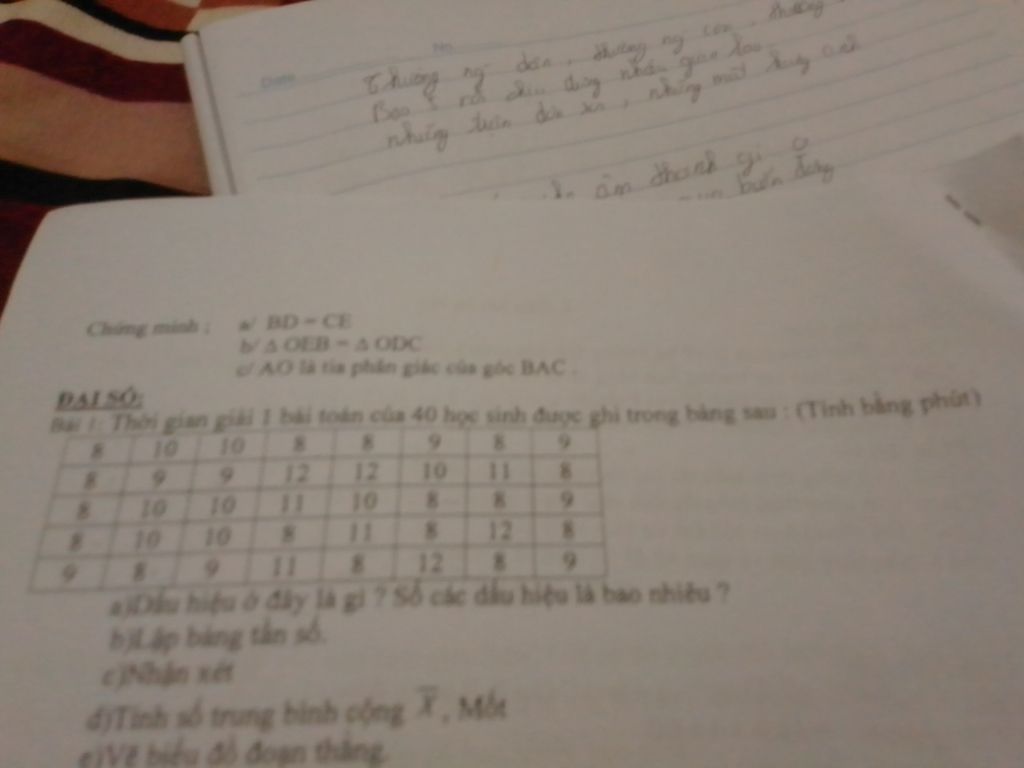 Date No.
Thương ng dân, thương ng con, thương
Bao
những
âm thanh gì
Chứng minh : a/ BD = CE
b/ Δ OEB = Δ ODC
c/ AO là tia phân giác của góc BAC .
ĐẠI SỐ:
Bài 1: Thời gian giải 1 bài toán của 40 học sinh được ghi trong bảng sau : (Tính bằng phút)
8 10 10 8 8 9 8 9
8 9 9 12 12 10 11 8
8 10 10 11 10 8 8 9
8 10 10 8 11 8 12 8
9 8 9 11 8 12 8 9
a)Dấu hiệu ở đây là gì ? Số các dấu hiệu là bao nhiêu ?
b)Lập bảng tần số.
c)Nhận xét
d)Tính số trung bình cộng X̄ , Mốt
e)Vẽ biểu đồ đoạn thẳng.